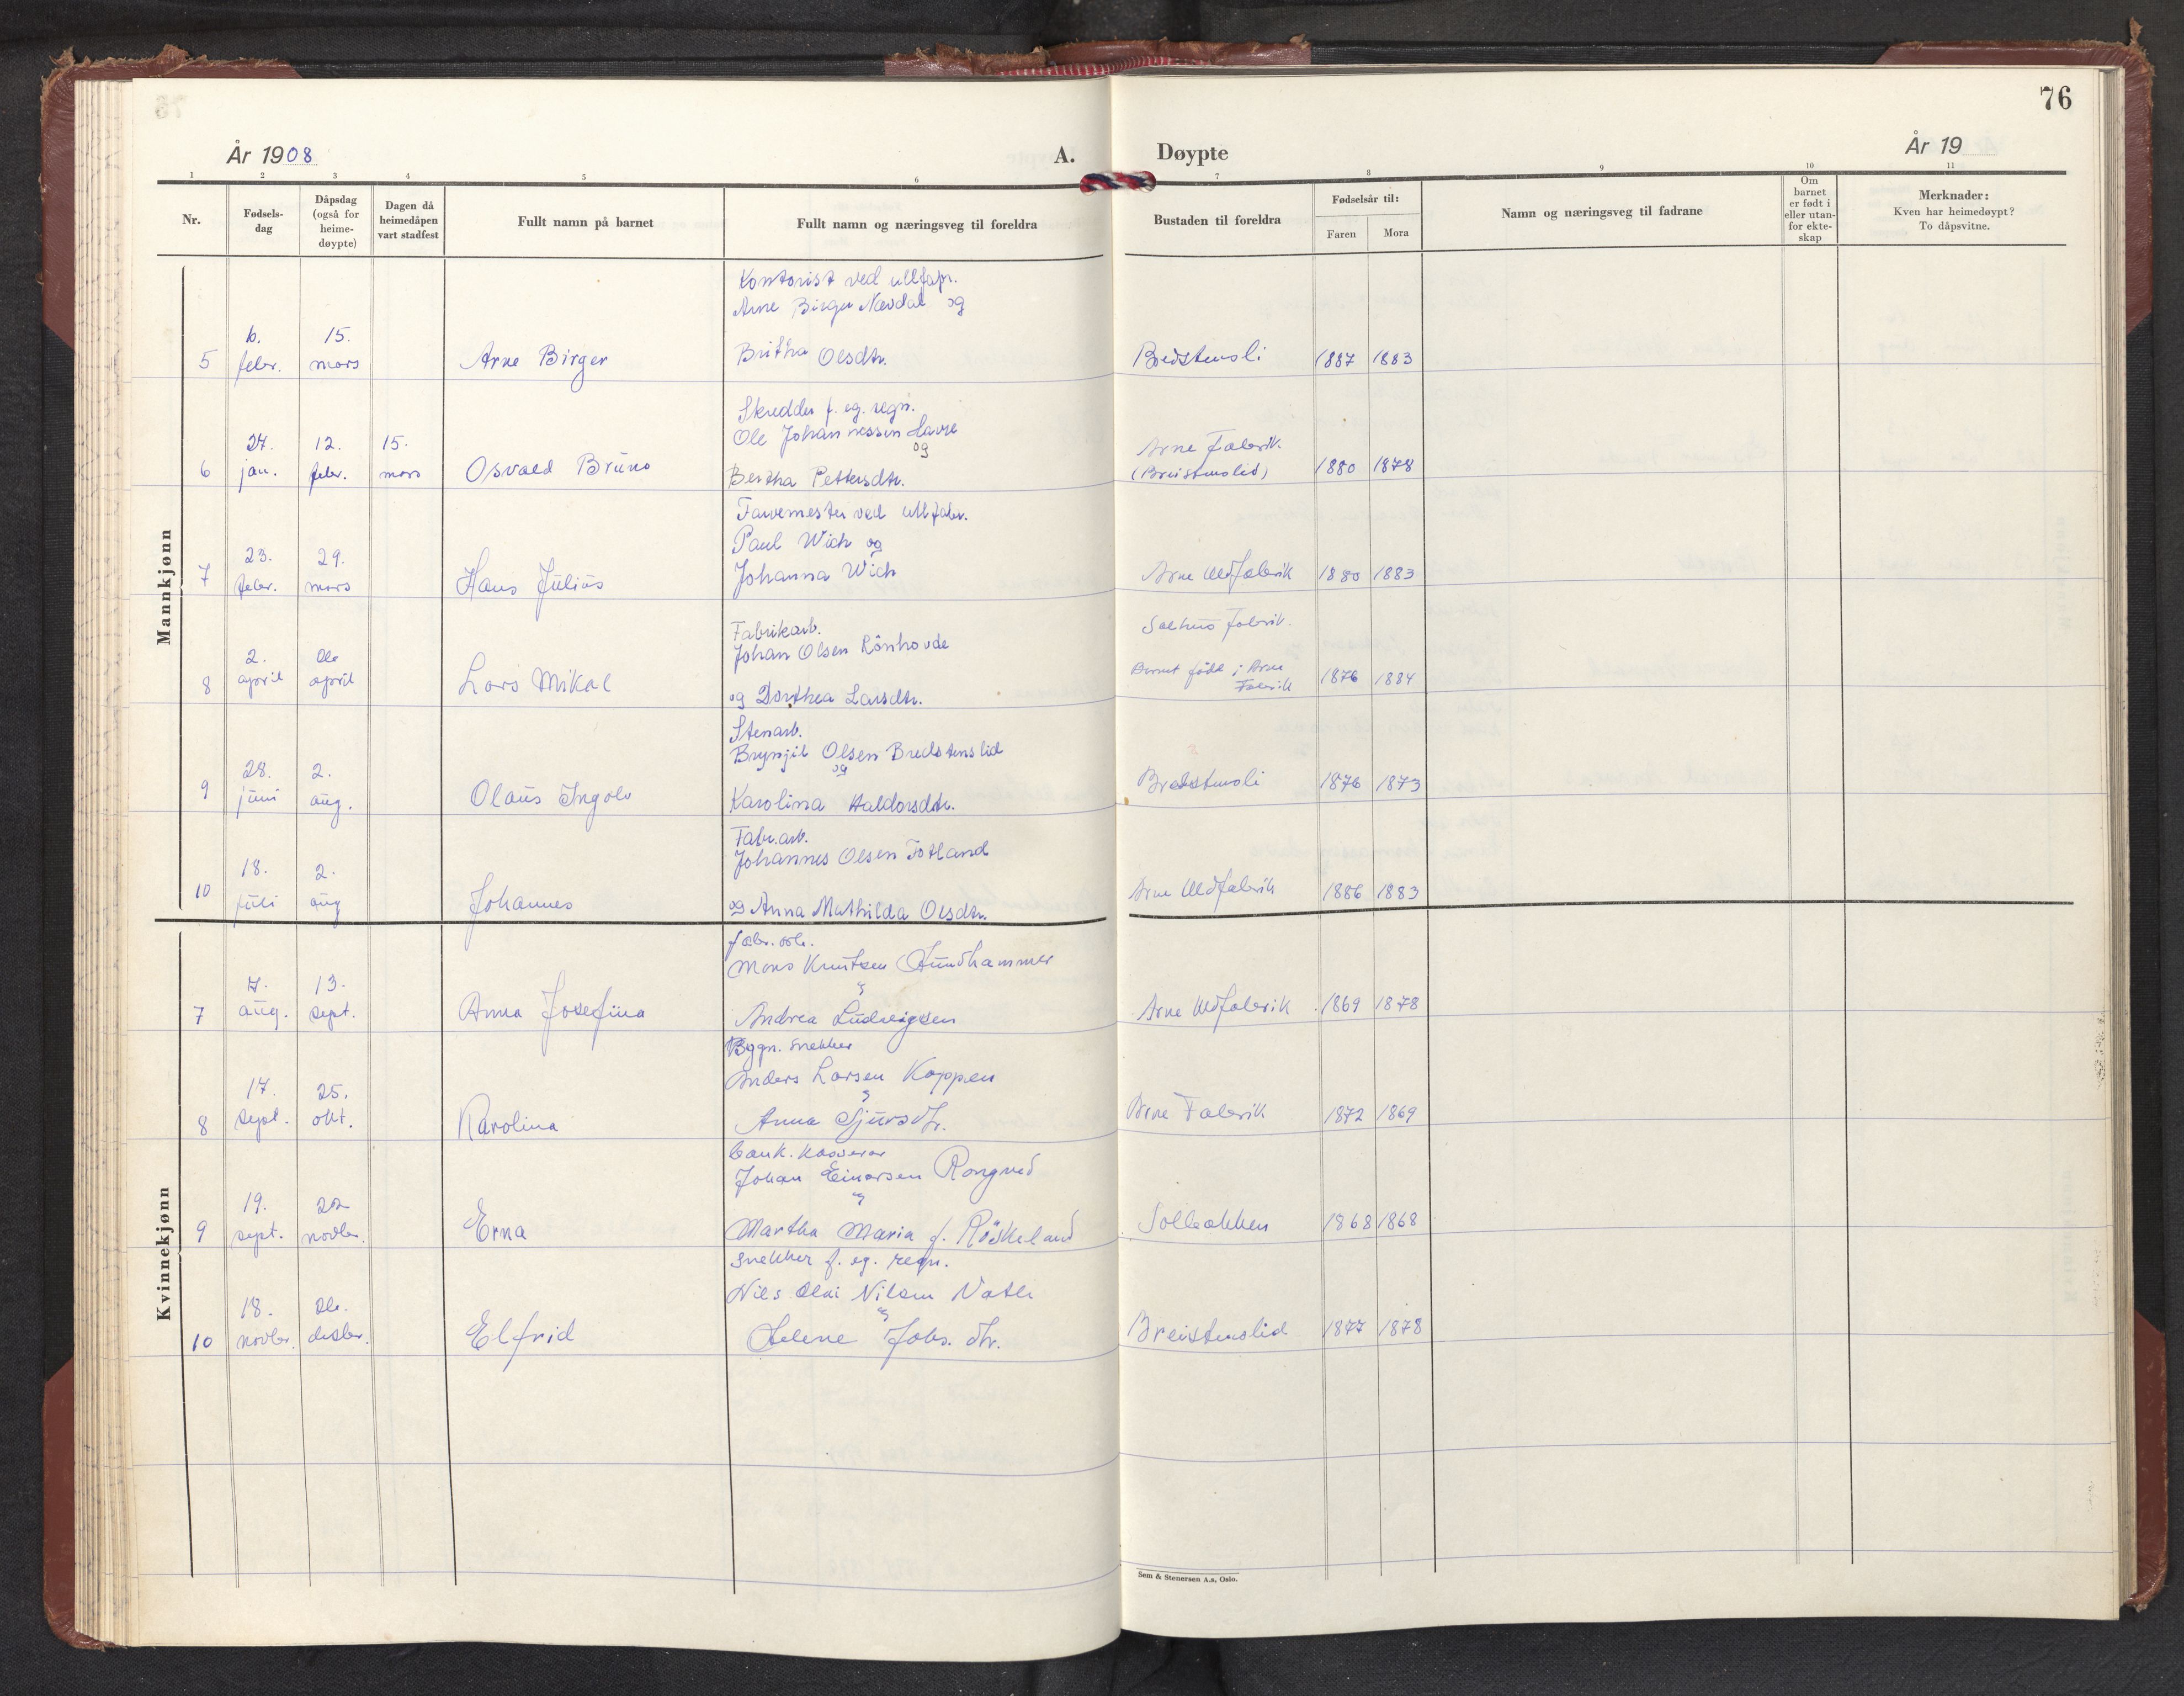 76
År 1908
A.
Døypte
År 19
1 2 3 4 5 6 7 8 9 10 11
Nr.
Fødsels-
dag
Dåpsdag
(også for
heime-
døypte)
Dagen då
heimedåpen
vart stadfest
Fullt namn på barnet
Fullt namn og næringsveg til foreldra
Bustaden til foreldra
Fødselsår til:
Faren
Mora
Namn og næringsveg til fadrane
Om
barnet
er født i
eller utan-
for ekte-
skap
Merknader:
Kven har heimedøypt?
To dåpsvitne.
Mannkjønn
Kontorist ved ullfabr.
Arne Birger Nævdal og
6. 15.
5 febr. mars Arne Birger Britha Olsdtr. Breistensli 1887 1883
Skredder f. eg. regn.
Ole Johannessen
og
24. 12. 15. Arne Fabrik
6 jan. febr. mars Osvald Bruno Bertha Pettersdtr. (Breistenslid) 1880 1878
Farvemester ved ullfabr.
Paul Wich og
23. 29.
7 febr. mars Hans Julius Johanna Wich Arne Uldfabrik 1880 1883
Fabrikarb. Salhus Fabrik.
Johan Olsen Rönhovde
2. Barnet född i Arne
8 april april Lars Mikal og Dorthea Larsdtr. Fabrik 1876 1884
Stenarb.
Brynjil Olsen Bredstenslid
og
28. 2.
9 juni aug. Olaus Ingolv Karolina Haldorsdtr. Bredstensli 1876 1873
Fabr.arb.
Johannes Olsen Totland
18. 2.
10 juli aug Johannes og Anna Mathilda Olsdtr. Arne Uldfabrik 1886 1883
Kvinnekjønn
fabr. arb.
Mons Knutsen Hundhammer
7. 13.
7 aug. sept. Anna Josefina Andrea Ludvigsen Arne Uldfabrik 1869 1878
Bygn. snekker
Anders Larsen Koppen
17. 25.
8 sept. okt. Karolina Anna Sjursdtr. Arne Fabrik 1872 1869
bank. kasserar
Johan Einarsen Rongved
19. 22
9 sept. novbr. Erna Martha Maria f. Röskeland Solbakken 1868 1868
Snekker f. eg. regn.
Nils Olai Nilsen
18.
10 novbr. desbr. Elfrid Helene Johs. dtr. Breistenslid 1877 1878
Sem & Stenersen A.s, Oslo.